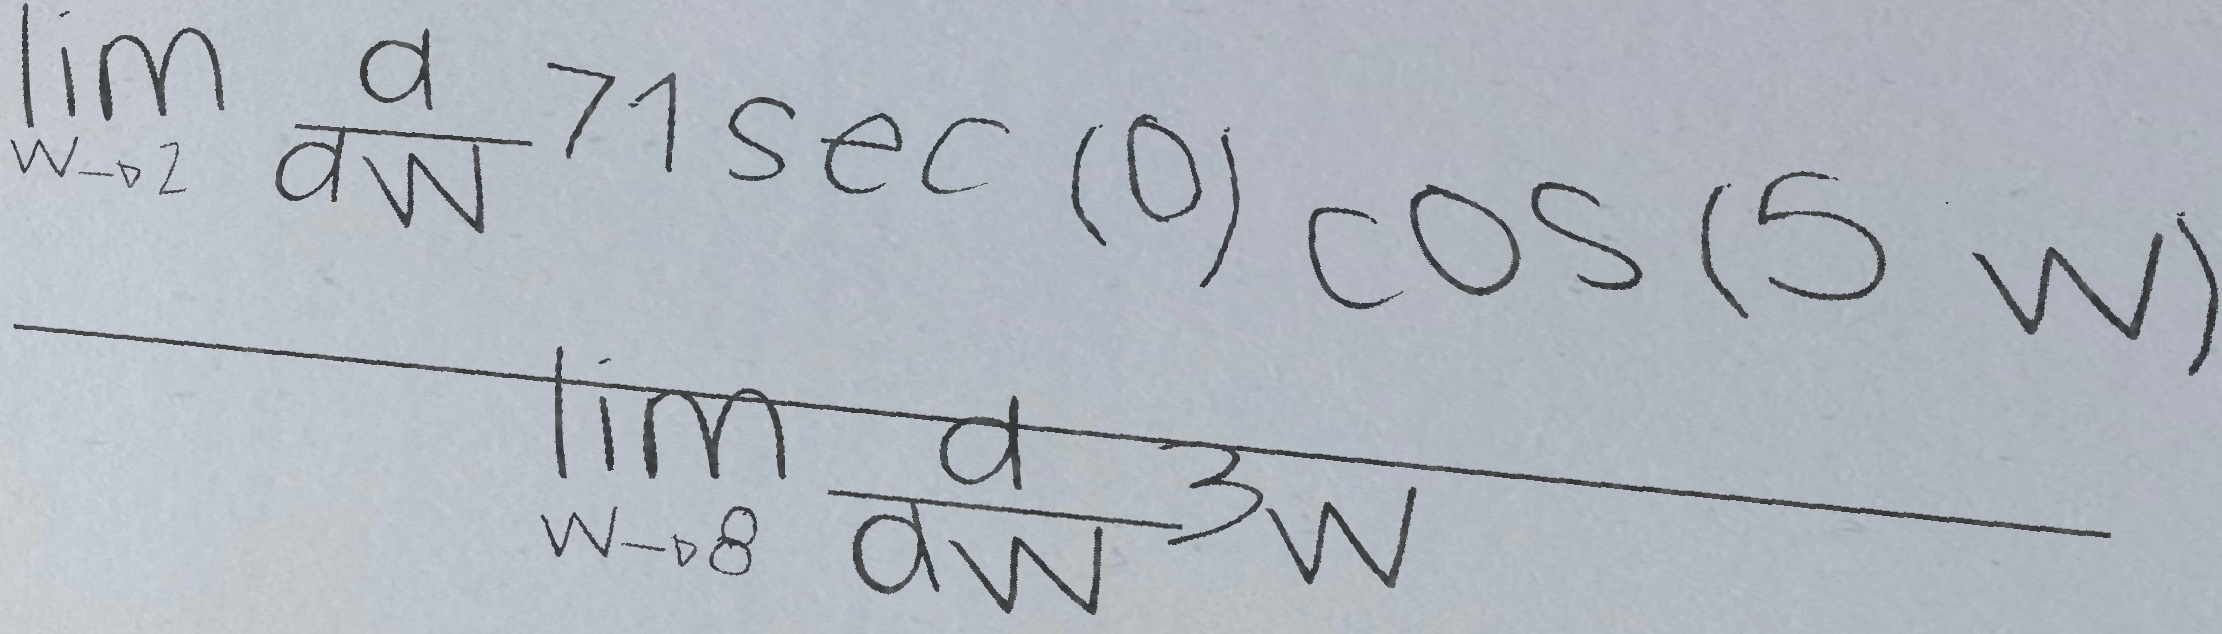 \frac{\lim_{w \to 2} \frac{d}{dw} 71 \sec(0) \cos(5w)}{\lim_{w \to 8} \frac{d}{dw} 3w}